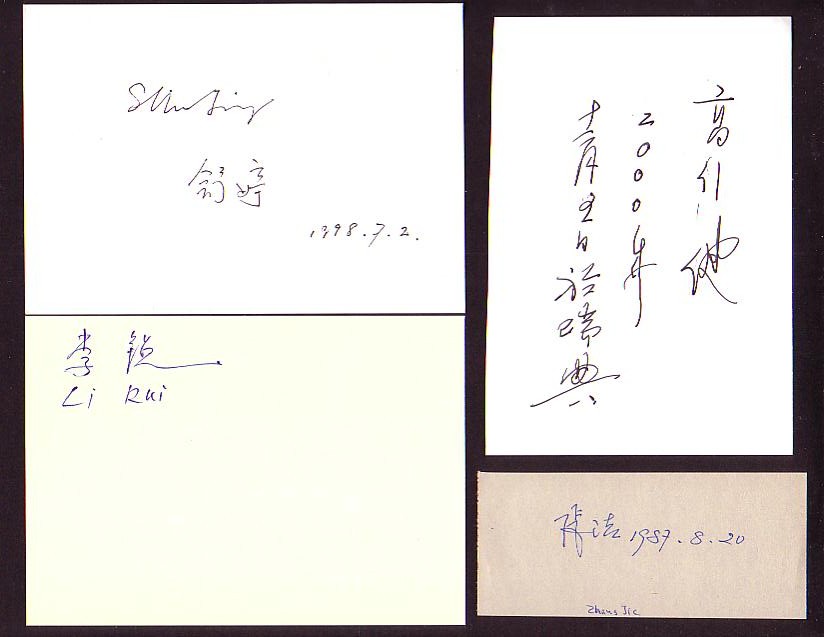 Shu Ting
舒婷
1998.7.2.
李锐
Li Rui
高行健
2000年
十二月五日於瑞典
张洁 1987.8.20
Zhang Jie